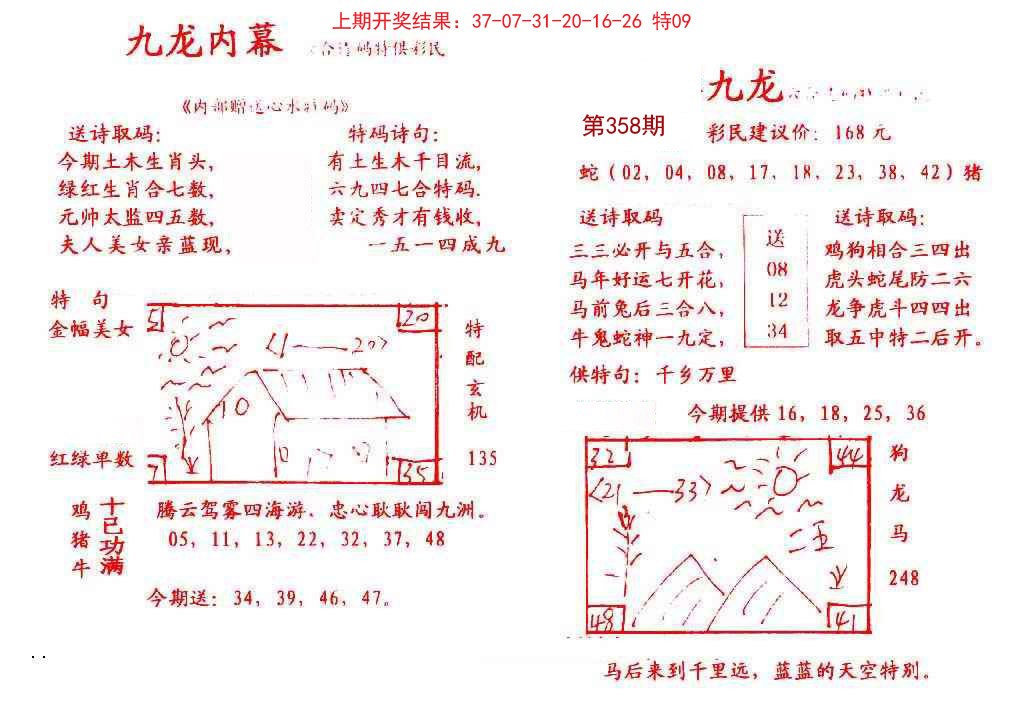 上期开奖结果：37-07-31-20-16-26 特09
九龙内幕
码特供彩民
《内部赠送心水特码》
送诗取码：
今期土木生肖头，
绿红生肖合七数，
元帅太监四五数，
夫人美女亲蓝现，
特码诗句：
有土生木千目流，
六九四七合特码.
卖定秀才有钱收，
一五一四成九
特 句
金幅美女
红绿单数
5
20
〈1——20〉
10
7
35
特
配
玄
机
135
鸡
猪
牛
十已功满
腾云驾雾四海游、忠心耿耿闯九洲。
05，11，13，22，32，37，48
今期送：34，39，46，47。
九龙
第358期
彩民建议价：168元
蛇（02，04，08，17，18，23，38，42）猪
送诗取码
三三必开与五合，
马年好运七开花，
马前兔后三合八，
牛鬼蛇神一九定，
送
08
12
34
送诗取码：
鸡狗相合三四出
虎头蛇尾防二六
龙争虎斗四四出
取五中特二后开。
供特句：千乡万里
今期提供16，18，25，36
32
44
〈21——33〉
二五
48
41
狗
龙
马
248
马后来到千里远，蓝蓝的天空特别。